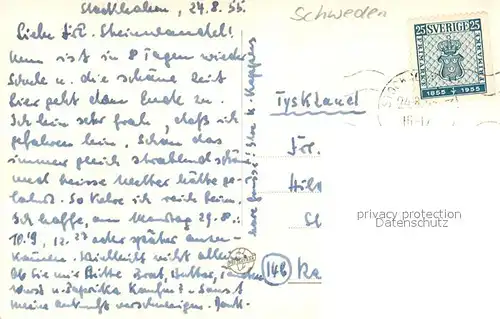 Stockholm, 24.8.55.
Schweden
Liebe Frl. Steinwandel!
Nun ist in 8 Tagen wieder
Schule u. die schöne Zeit
hier geht dem Ende zu.
Ich bin sehr froh, daß ich
gefahren bin. Schon das
immer gleich strahlend schöne
und heisse Wetter hätte ge-
lohnt. So kehre ich reich heim.
Ich hoffe, am Montag 29.8.:
10.19, 12.23 oder später anzu-
kommen. Vielleicht nicht allein.
Ob Sie mir bitte Brot, Butter,
Wurst u. Paprika kaufen? Sonst
meine Ankunft verschweigen. Dank.
25 SVERIGE 25
FRIMÄRKE
1855 1955
Tyskland
Frl.
14b
privacy protection
DATENSCHUTZ